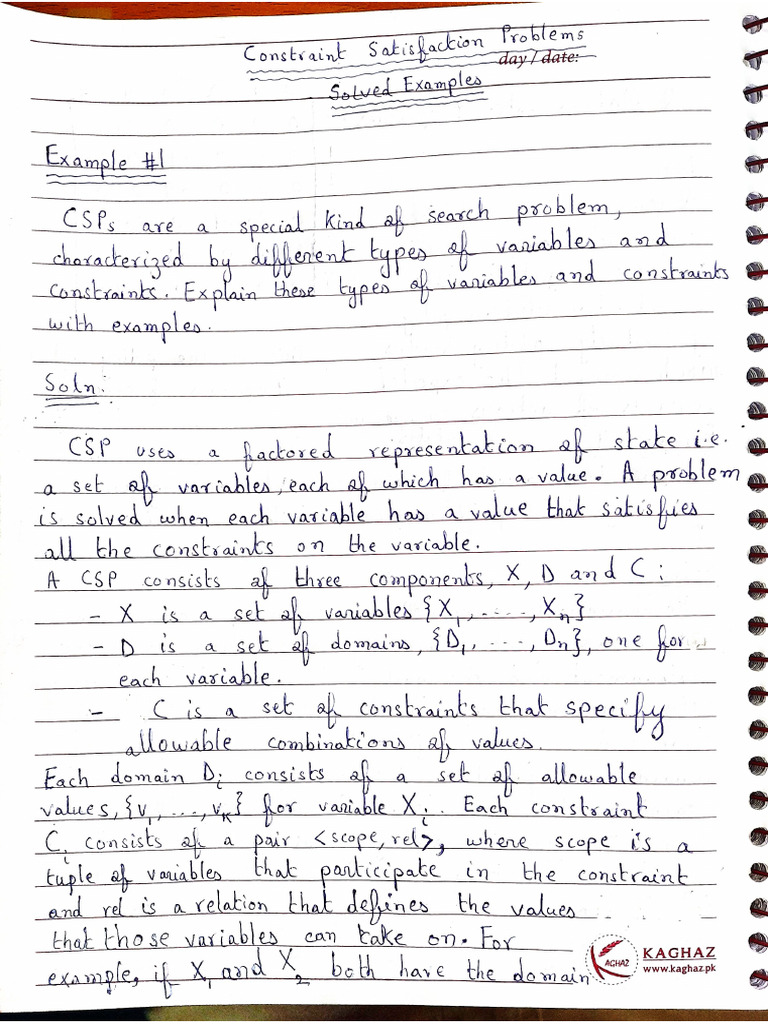 Constraint Satisfaction Problems
day / date:
Solved Examples
Example #1
CSPs are a special kind of search problem,
characterized by different types of variables and
constraints. Explain these types of variables and constraints
with examples.
Soln:
CSP uses a factored representation of state i.e.
a set of variables, each of which has a value. A problem
is solved when each variable has a value that satisfies
all the constraints on the variable.
A CSP consists of three components, X, D and C:
- X is a set of variables {X₁, ....., Xₙ}
- D is a set of domains, {D₁, ...., Dₙ}, one for
each variable.
- C is a set of constraints that specify
allowable combinations of values.
Each domain Dᵢ consists of a set of allowable
values, {v₁, ..., vₖ} for variable Xᵢ. Each constraint
Cᵢ consists of a pair <scope, rel>, where scope is a
tuple of variables that participate in the constraint
and rel is a relation that defines the values
that those variables can take on. For
example, if X₁ and X₂ both have the domain
KAGHAZ
www.kaghaz.pk